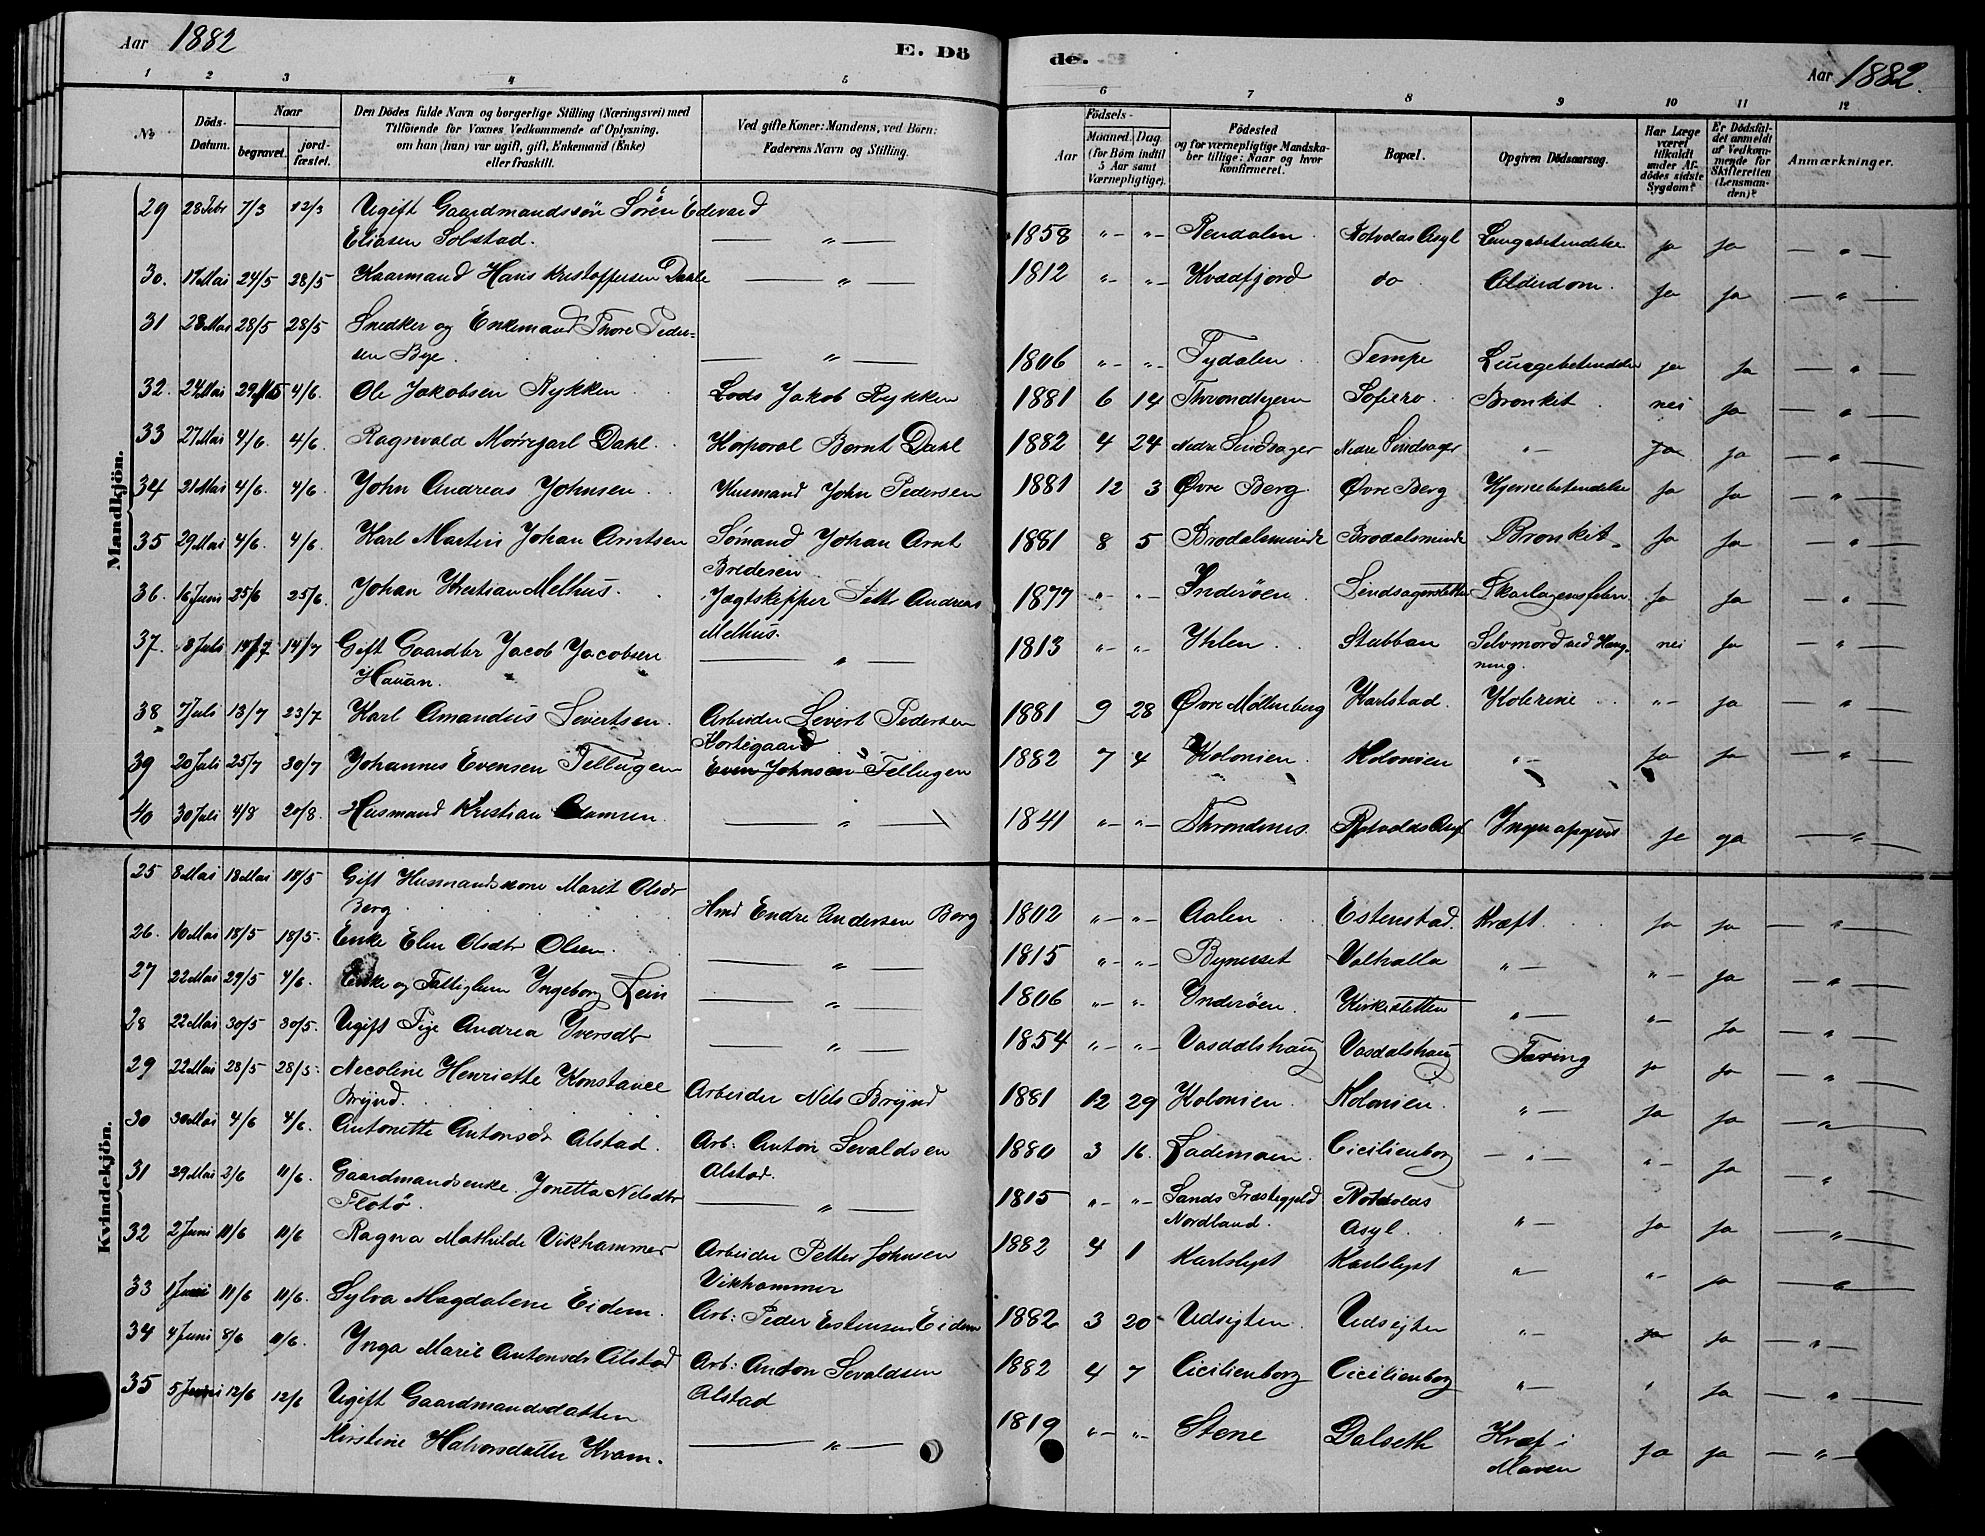 Aar 1882 E. Dö de. Aar 1882.
1 2 3 4 5 6 7 8 9 10 11 12
No
Döds-Datum.
Naar
begravet. jordfæstet.
Den Dödes fulde Navn og borgerlige Stilling (Næringsvei) med
Tilföiende for Voxnes Vedkommende af Oplysning.
om han (hun) var ugift, gift, Enkemand (Enke)
eller fraskilt.
Ved gifte Koner: Mandens, ved Börn:
Faderens Navn og Stilling.
Födsels-
Aar Maaned. Dag.
(for Börn indtil
5 Aar samt
Værnepligtige).
Födested
og for værnepligtige Mandska-
ber tillige: Naar og hvor
konfirmeret.
Bopæl.
Opgiven Dödsaarsag.
Har Læge
været
tilkaldt
under Af-
dödes sidste
Sygdom?
Er Dödsfal-
det anmeldt
af Vedkom-
mende for
Skifteretten
(Lensman-
den)?
Anmærkninger.
Mandkjön.
29 28 Febr 7/3 12/3 Ugift Gaardmandssön Sören Edevard
Eliasen Solstad. — " — 1858 " - " - Rendalen Rotvolds Asyl Lungebetendelse ja ja — " —
30. 17 Mai 24/5 28/5 Kaarmand Hans Kristoffersen Dahle — " — 1812 " - " - Kvædfjord do Alderdom. ja ja — " —
31 23 Mai 28/5 28/5 Snedker og Enkemand Thore Peder-
sen Bye. — " — 1806 " - " - Tydalen Tempe Lungebetendelse ja ja — " —
32. 24 Mai 29/5 4/6. Ole Jakobsen Rykken Lods Jakob Rykken 1881 6 14 Throndhjem Sofiero Bronkit nei ja — " —
33 27 Mai 4/6. 4/6. Ragnvald Mørejarl Dahl. Korporal Bernt Dahl 1882 4 24 Nedre Lindsager Nedre Lindsager " - ja ja — " —
34 31 Mai 4/6. 4/6. John Andreas Johnsen Husmand John Pedersen 1881 12 3 Øvre Berg Øvre Berg Hjernebetendelse ja ja — " —
35 29 Mai 4/6. 4/6. Karl Martin Johan Arntsen Sømand Johan Arnt
Bredesen 1881 8 5 Brodalsminde Brodalsminde Bronkit. ja ja — " —
36. 16 Juni 25/6 25/6. Johan Kristian Melhus. Jægtskipper Petter Andreas
Melhus. 1877 " - " - Inderøen Lindsagersletten Skarlagensfeber ja ja — " —
37. 8 Juli 14/7 14/7 Gift Gaardbr Jacob Jacobsen
Hauan. — " — 1813 " - " - Ihlen Stubban Selvmord ved Hæng-
ning. nei ja — " —
38 7 Juli 13/7 23/7 Karl Amandus Sivertsen. Arbeider Sivert Pedersen
Kortegaard 1881 9 28 Øvre Møllenberg Karlstad. Kolerine " - ja — " —
39 20 Juli 25/7 30/7 Johannes Evensen Tellugen Even Johnsen Tellugen 1882 7 4 Kolonien Kolonien " - ja ja — " —
40 30 Juli 4/8 20/8. Husmand Kristian — " — 1841 " - " - Throndenes Rotvolds Asyl Ingen opgivet ja ja — " —
Kvindekjön.
25 8 Mai 18 Mai 18/5 Gift Husmandskone Marit Olsdr
Berg Hmd Endre Andersen Berg 1802 " - " - Aalen Estenstad. Kræft ja ja — " —
26. 10 Mai 18/5 18/5. Enke Elen Olsdtr Olsen — " — 1815 " - " - Bynesset Valhalla " — " - ja — " —
27 22 Mai 29/5 4/6. Enke og Fattiglem Ingeborg Lein — " — 1806 " - " - Inderøen. Kirkesletten " — " - ja — " —
28 22 Mai 30/5 30/5. Ugift Pige Andrea Iversdtr — " — 1854 " - " - Vasdalshaug Vasdalshaug Tæring ja ja — " —
29 22 Mai 28/5 28/5. Necoline Henriette Konstance
Brynd. Arbeider Nils Brynd 1881 12 29 Kolonien. Kolonien. " — ja ja — " —
30 30 Mai 4/6 4/6. Antonette Antonsdr Alstad. Arb: Anton Sevaldsen
Alstad. 1880 3 16. Lademoen. Cicilienborg — " — " - ja — " —
31 29 Mai 3/6 11/6. Gaardmandsenke. Jonetta Nelsdtr
Flotö. — " — 1815 " - " - Sands Præstegjeld
Nordland. Rotvolds
Asyl. " — ja ja — " —
32 2 Juni 11/6 11/6 Ragna Mathilde Vikhammer Arbeider Petter Johnsen
Vikhammer 1882 4 1 Karlslyst Karlslyst " - " - ja — " —
33 1 Juni 11/6 11/6. Sylva Magdalene Eidem. Arb: Peder Estensen Eidem 1882 3 20 Udsigten Udsigten " - ja ja — " —
34 4 Juni 8/6 11/6. Inga Marie Antonsdr Alstad Arb: Anton Sevaldsen
Alstad 1882 4 7 Cicilienborg Cicilienborg " — " ja — " —
35 5 Juni 12/6 12/6 Ugift Gaardmandsdatter
Kirstine Halvorsdatter Kvam. — " — 1819 " - " - Stene Dalseth Kræf i
Maven ja ja — " —